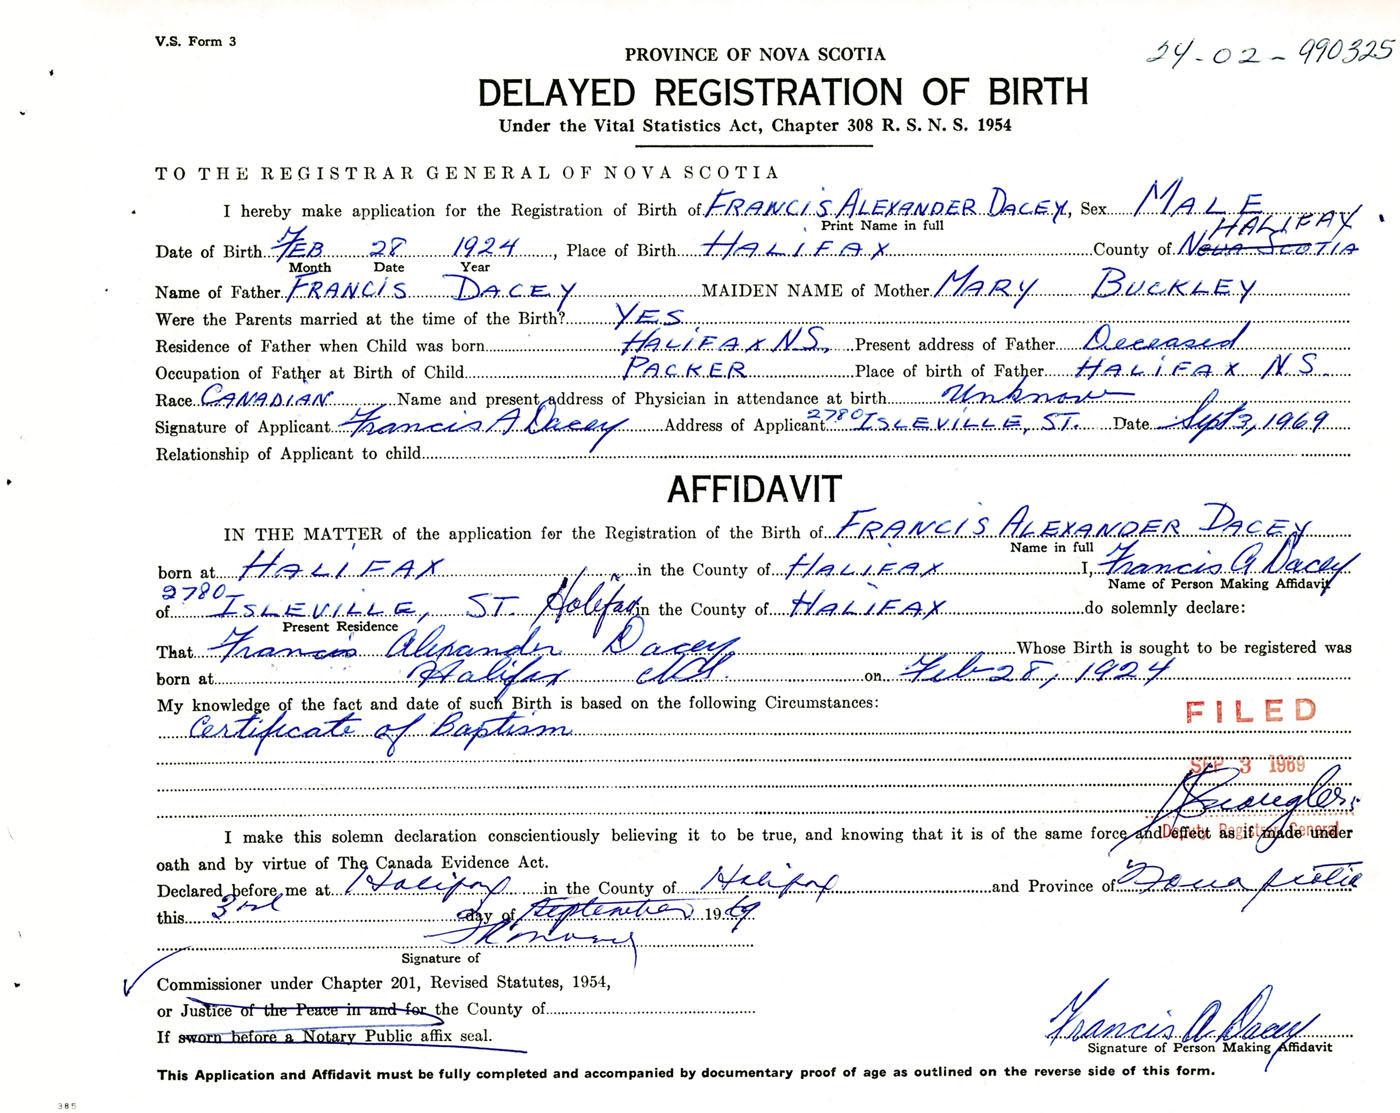 V.S. Form 3
24-02-990325
PROVINCE OF NOVA SCOTIA
DELAYED REGISTRATION OF BIRTH
Under the Vital Statistics Act, Chapter 308 R. S. N. S. 1954
TO THE REGISTRAR GENERAL OF NOVA SCOTIA
I hereby make application for the Registration of Birth of FRANCIS ALEXANDER DACEY, Sex MALE
Print Name in full
HALIFAX
Date of Birth FEB 28 1924, Place of Birth HALIFAX County of NOVA SCOTIA
Month Date Year
Name of Father FRANCIS DACEY MAIDEN NAME of Mother MARY BUCKLEY
Were the Parents married at the time of the Birth? YES
Residence of Father when Child was born HALIFAX N.S. Present address of Father Deceased
Occupation of Father at Birth of Child PACKER Place of birth of Father HALIFAX N S.
Race CANADIAN Name and present address of Physician in attendance at birth Unknown
Signature of Applicant Francis A Dacey Address of Applicant 2780 ISLEVILLE, ST. Date Sept 3, 1969
Relationship of Applicant to child
AFFIDAVIT
IN THE MATTER of the application for the Registration of the Birth of FRANCIS ALEXANDER DACEY
Name in full
born at HALIFAX in the County of HALIFAX I, Francis A Dacey
Name of Person Making Affidavit
2780
of ISLEVILLE, ST. Halifax in the County of HALIFAX do solemnly declare:
Present Residence
That Francis Alexander Dacey Whose Birth is sought to be registered was
born at Halifax N.S. on Feb 28, 1924
My knowledge of the fact and date of such Birth is based on the following Circumstances:
FILED
Certificate of Baptism
SEP 3 1969
Deputy Registrar General
I make this solemn declaration conscientiously believing it to be true, and knowing that it is of the same force and effect as if made under
oath and by virtue of The Canada Evidence Act.
Declared before me at Halifax in the County of Halifax and Province of Nova Scotia
this 3rd day of September 1969
Signature of
Commissioner under Chapter 201, Revised Statutes, 1954,
or Justice of the Peace in and for the County of
If sworn before a Notary Public affix seal.
Francis A Dacey
Signature of Person Making Affidavit
This Application and Affidavit must be fully completed and accompanied by documentary proof of age as outlined on the reverse side of this form.
385